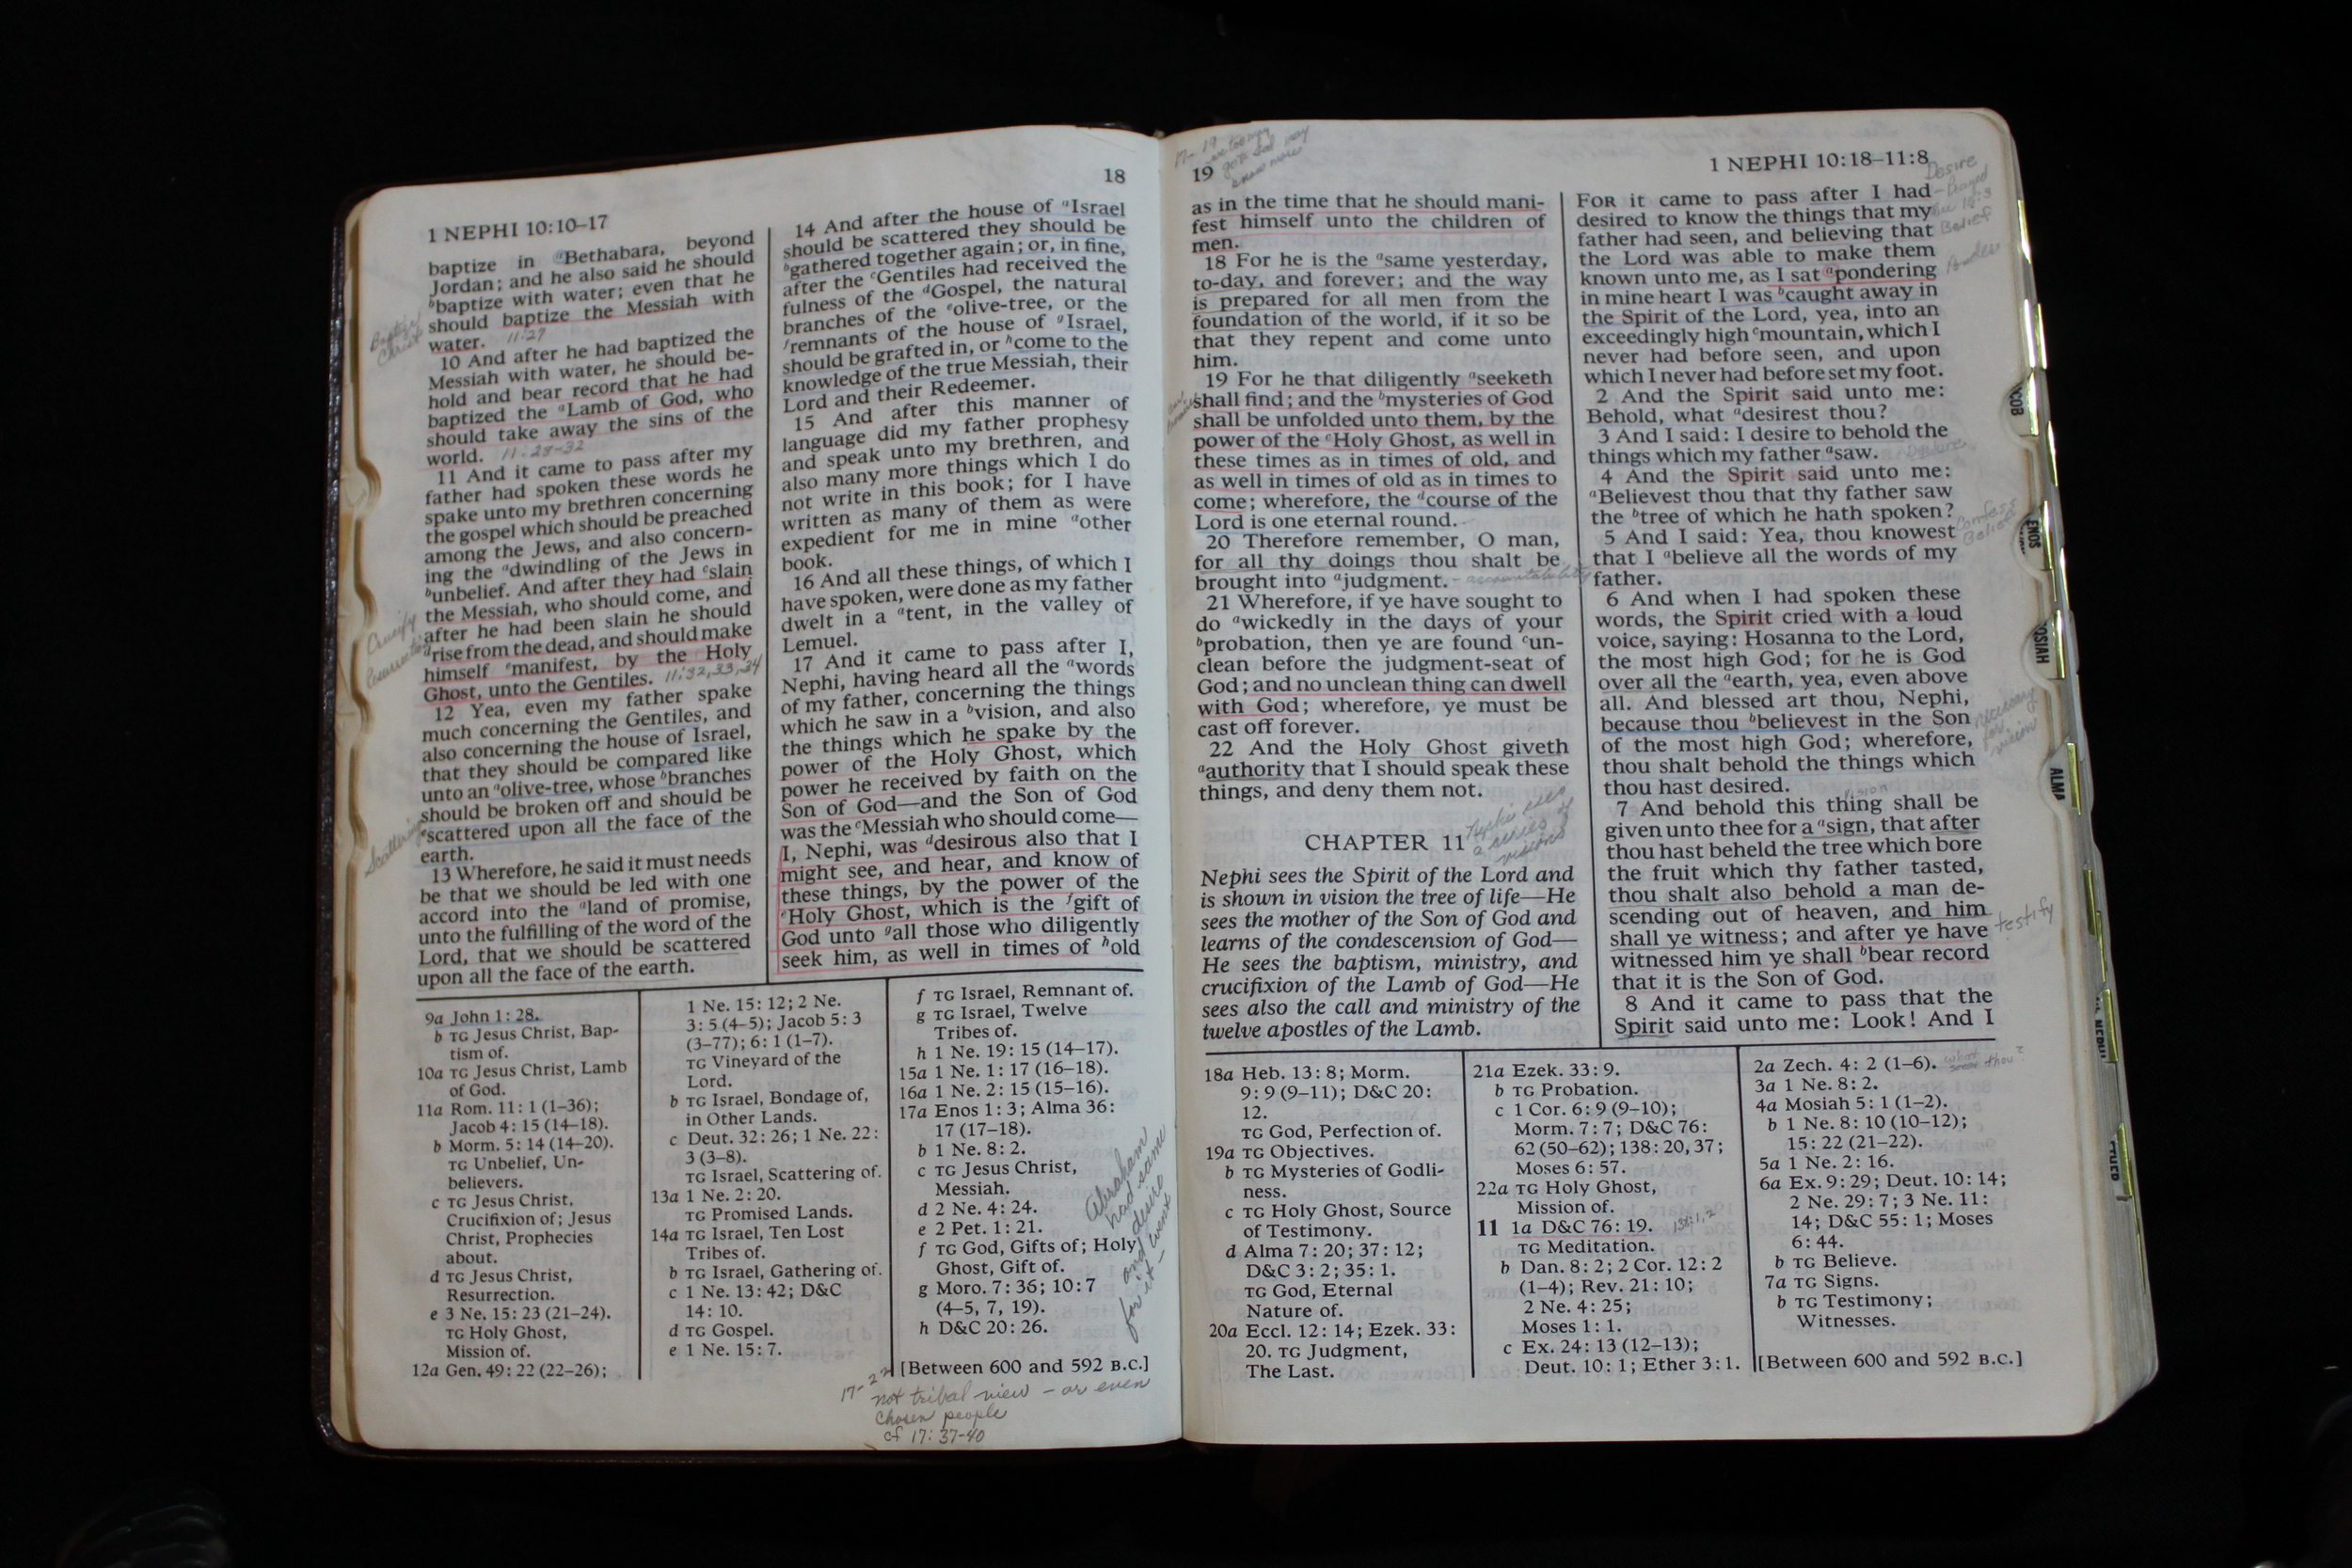 18
1 NEPHI 10:10–17
baptize in aBethabara, beyond
Jordan; and he also said he should
bbaptize with water; even that he
should baptize the Messiah with
water. 11:27
Baptize
Christ
10 And after he had baptized the
Messiah with water, he should be-
hold and bear record that he had
baptized the aLamb of God, who
should take away the sins of the
world. 11:28-32
11 And it came to pass after my
father had spoken these words he
spake unto my brethren concerning
the gospel which should be preached
among the Jews, and also concern-
ing the adwindling of the Jews in
bunbelief. And after they had cslain
the Messiah, who should come, and
after he had been slain he should
drise from the dead, and should make
himself emanifest, by the Holy
Ghost, unto the Gentiles. 11:32,33,34
Crucify
Resurrection
12 Yea, even my father spake
much concerning the Gentiles, and
also concerning the house of Israel,
that they should be compared like
unto an aolive-tree, whose bbranches
should be broken off and should be
cscattered upon all the face of the
earth.
Scattering
13 Wherefore, he said it must needs
be that we should be led with one
accord into the aland of promise,
unto the fulfilling of the word of the
Lord, that we should be scattered
upon all the face of the earth.
14 And after the house of aIsrael
should be scattered they should be
bgathered together again; or, in fine,
after the cGentiles had received the
fulness of the dGospel, the natural
branches of the eolive-tree, or the
fremnants of the house of gIsrael,
should be grafted in, or hcome to the
knowledge of the true Messiah, their
Lord and their Redeemer.
15 And after this manner of
language did my father prophesy
and speak unto my brethren, and
also many more things which I do
not write in this book; for I have
written as many of them as were
expedient for me in mine aother
book.
16 And all these things, of which I
have spoken, were done as my father
dwelt in a atent, in the valley of
Lemuel.
17 And it came to pass after I,
Nephi, having heard all the awords
of my father, concerning the things
which he saw in a bvision, and also
the things which he spake by the
power of the Holy Ghost, which
power he received by faith on the
Son of God—and the Son of God
was the cMessiah who should come—
I, Nephi, was ddesirous also that I
might see, and hear, and know of
these things, by the power of the
eHoly Ghost, which is the fgift of
God unto gall those who diligently
seek him, as well in times of hold
9a John 1: 28.
b TG Jesus Christ, Bap-
tism of.
10a TG Jesus Christ, Lamb
of God.
11a Rom. 11: 1 (1–36);
Jacob 4: 15 (14–18).
b Morm. 5: 14 (14–20).
TG Unbelief, Un-
believers.
c TG Jesus Christ,
Crucifixion of; Jesus
Christ, Prophecies
about.
d TG Jesus Christ,
Resurrection.
e 3 Ne. 15: 23 (21–24).
TG Holy Ghost,
Mission of.
12a Gen. 49: 22 (22–26);
1 Ne. 15: 12; 2 Ne.
3: 5 (4–5); Jacob 5: 3
(3–77); 6: 1 (1–7).
TG Vineyard of the
Lord.
b TG Israel, Bondage of,
in Other Lands.
c Deut. 32: 26; 1 Ne. 22:
3 (3–8).
TG Israel, Scattering of.
13a 1 Ne. 2: 20.
TG Promised Lands.
14a TG Israel, Ten Lost
Tribes of.
b TG Israel, Gathering of.
c 1 Ne. 13: 42; D&C
14: 10.
d TG Gospel.
e 1 Ne. 15: 7.
f TG Israel, Remnant of.
g TG Israel, Twelve
Tribes of.
h 1 Ne. 19: 15 (14–17).
15a 1 Ne. 1: 17 (16–18).
16a 1 Ne. 2: 15 (15–16).
17a Enos 1: 3; Alma 36:
17 (17–18).
b 1 Ne. 8: 2.
c TG Jesus Christ,
Messiah.
d 2 Ne. 4: 24.
e 2 Pet. 1: 21.
f TG God, Gifts of; Holy
Ghost, Gift of.
g Moro. 7: 36; 10: 7
(4–5, 7, 19).
h D&C 20: 26.
Abraham
had same
desire
and went
for it-
[Between 600 and 592 B.C.]
17-22
not tribal view - or even
Chosen people
cf 17:37-40
17-19
we too may
know more
19
1 NEPHI 10:18–11:8
as in the time that he should mani-
fest himself unto the children of
men.
18 For he is the asame yesterday,
to-day, and forever; and the way
is prepared for all men from the
foundation of the world, if it so be
that they repent and come unto
him.
19 For he that diligently aseeketh
shall find; and the bmysteries of God
shall be unfolded unto them, by the
power of the cHoly Ghost, as well in
these times as in times of old, and
as well in times of old as in times to
come; wherefore, the dcourse of the
Lord is one eternal round.
20 Therefore remember, O man,
for all thy doings thou shalt be
brought into ajudgment. - accountability
21 Wherefore, if ye have sought to
do awickedly in the days of your
bprobation, then ye are found cun-
clean before the judgment-seat of
God; and no unclean thing can dwell
with God; wherefore, ye must be
cast off forever.
22 And the Holy Ghost giveth
aauthority that I should speak these
things, and deny them not.
CHAPTER 11
Nephi sees
a series of
visions
Nephi sees the Spirit of the Lord and
is shown in vision the tree of life—He
sees the mother of the Son of God and
learns of the condescension of God—
He sees the baptism, ministry, and
crucifixion of the Lamb of God—He
sees also the call and ministry of the
twelve apostles of the Lamb.
FOR it came to pass after I had
desired to know the things that my
father had seen, and believing that
the Lord was able to make them
known unto me, as I sat apondering
in mine heart I was bcaught away in
the Spirit of the Lord, yea, into an
exceedingly high cmountain, which I
never had before seen, and upon
which I never had before set my foot.
Desire
Belief
Ponder
2 And the Spirit said unto me:
Behold, what adesirest thou?
3 And I said: I desire to behold the
things which my father asaw.
4 And the Spirit said unto me:
aBelievest thou that thy father saw
the btree of which he hath spoken?
5 And I said: Yea, thou knowest
that I abelieve all the words of my
father.
Confess
Belief
6 And when I had spoken these
words, the Spirit cried with a loud
voice, saying: Hosanna to the Lord,
the most high God; for he is God
over all the aearth, yea, even above
all. And blessed art thou, Nephi,
because thou bbelievest in the Son
of the most high God; wherefore,
thou shalt behold the things which
thou hast desired.
necessary
for
vision
vision
7 And behold this thing shall be
given unto thee for a asign, that after
thou hast beheld the tree which bore
the fruit which thy father tasted,
thou shalt also behold a man de-
scending out of heaven, and him
shall ye witness; and after ye have
witnessed him ye shall bbear record
that it is the Son of God.
testify
8 And it came to pass that the
Spirit said unto me: Look! And I
18a Heb. 13: 8; Morm.
9: 9 (9–11); D&C 20:
12.
TG God, Perfection of.
19a TG Objectives.
b TG Mysteries of Godli-
ness.
c TG Holy Ghost, Source
of Testimony.
d Alma 7: 20; 37: 12;
D&C 3: 2; 35: 1.
TG God, Eternal
Nature of.
20a Eccl. 12: 14; Ezek. 33:
20. TG Judgment,
The Last.
21a Ezek. 33: 9.
b TG Probation.
c 1 Cor. 6: 9 (9–10);
Morm. 7: 7; D&C 76:
62 (50–62); 138: 20, 37;
Moses 6: 57.
22a TG Holy Ghost,
Mission of.
11 1a D&C 76: 19. 138:1,2
TG Meditation.
b Dan. 8: 2; 2 Cor. 12: 2
(1–4); Rev. 21: 10;
2 Ne. 4: 25;
Moses 1: 1.
c Ex. 24: 13 (12–13);
Deut. 10: 1; Ether 3: 1.
2a Zech. 4: 2 (1–6).
3a 1 Ne. 8: 2.
4a Mosiah 5: 1 (1–2).
b 1 Ne. 8: 10 (10–12);
15: 22 (21–22).
5a 1 Ne. 2: 16.
6a Ex. 9: 29; Deut. 10: 14;
2 Ne. 29: 7; 3 Ne. 11:
14; D&C 55: 1; Moses
6: 44.
b TG Believe.
7a TG Signs.
b TG Testimony;
Witnesses.
[Between 600 and 592 B.C.]
ENOS
ALMA